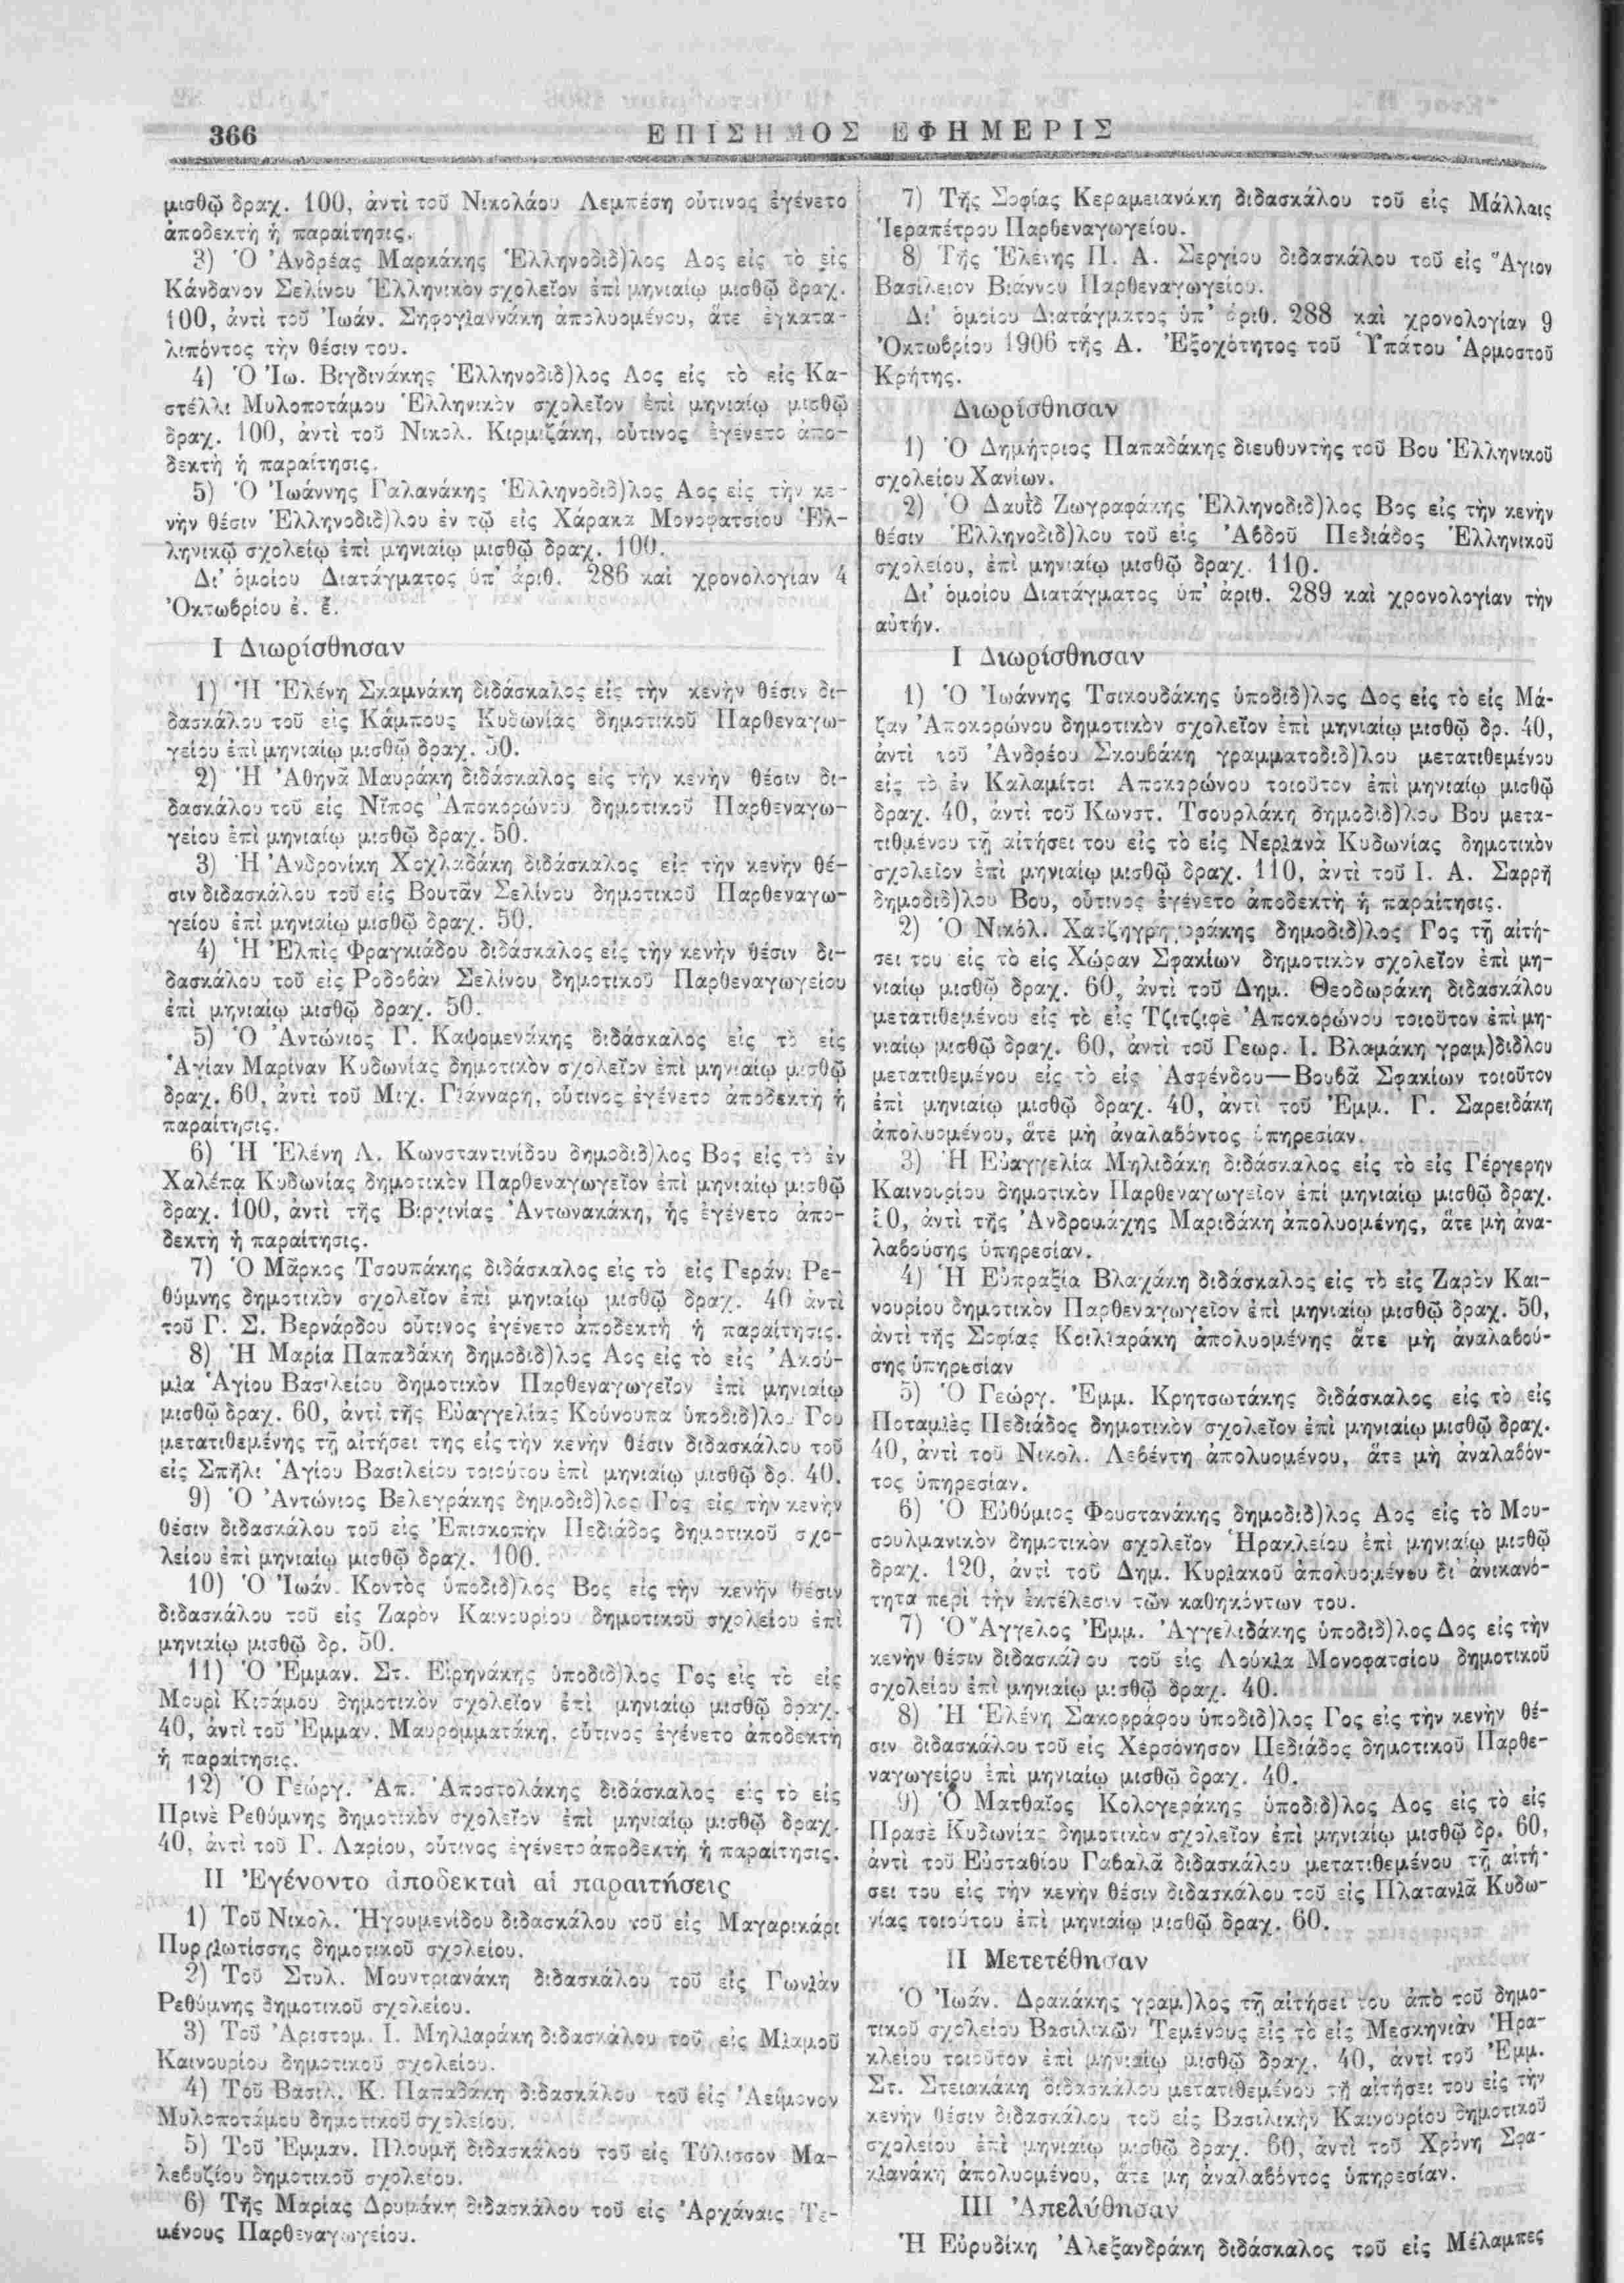 366
ΕΠΙΣΗΜΟΣ ΕΦΗΜΕΡΙΣ
μισθῷ δραχ. 100, ἀντὶ τοῦ Νικολάου Λεμπέση οὗτινος ἐγένετο
ἀποδεκτὴ ἡ παραίτησις.
3) Ὁ Ἀνδρέας Μαρκάκης Ἑλληνοδιδ)λος Αος εἰς τὸ εἰς
Κάνδανον Σελίνου Ἑλληνικὸν σχολεῖον ἐπὶ μηνιαίῳ μισθῷ δραχ.
100, ἀντὶ τοῦ Ἰωάν. Σηφογιαννάκη ἀπολυομένου, ἅτε ἐγκατα-
λιπόντος τὴν θέσιν του.
4) Ὁ Ἰω. Βιγδινάκης Ἑλληνοδιδ)λος Αος εἰς τὸ εἰς Κα-
στέλλι Μυλοποτάμου Ἑλληνικὸν σχολεῖον ἐπὶ μηνιαίῳ μισθῷ
δραχ. 100, ἀντὶ τοῦ Νικολ. Κιρμιζάκη, οὗτινος ἐγένετο ἀπο-
δεκτὴ ἡ παραίτησις.
5) Ὁ Ἰωάννης Γαλανάκης Ἑλληνοδιδ)λος Αος εἰς τὴν κε-
νὴν θέσιν Ἑλληνοδιδ)λου ἐν τῷ εἰς Χάρακα Μονοφατσίου Ἑλ-
ληνικῷ σχολείῳ ἐπὶ μηνιαίῳ μισθῷ δραχ. 100.
Δι' ὁμοίου Διατάγματος ὑπ' ἀριθ. 286 καὶ χρονολογίαν 4
Ὀκτωβρίου ἐ. ἔ.
Ι Διωρίσθησαν
1) Ἡ Ἑλένη Σκαμνάκη διδάσκαλος εἰς τὴν κενὴν θέσιν δι-
δασκάλου τοῦ εἰς Κάμπους Κυδωνίας δημοτικοῦ Παρθεναγω-
γείου ἐπὶ μηνιαίῳ μισθῷ δραχ. 50.
2) Ἡ Ἀθηνᾶ Μαυράκη διδάσκαλος εἰς τὴν κενὴν θέσιν δι-
δασκάλου τοῦ εἰς Νῖπος Ἀποκορώνου δημοτικοῦ Παρθεναγω-
γείου ἐπὶ μηνιαίῳ μισθῷ δραχ. 50.
3) Ἡ Ἀνδρονίκη Χοχλαδάκη διδάσκαλος εἰς τὴν κενὴν θέ-
σιν διδασκάλου τοῦ εἰς Βουτᾶν Σελίνου δημοτικοῦ Παρθεναγω-
γείου ἐπὶ μηνιαίῳ μισθῷ δραχ. 50.
4) Ἡ Ἐλπὶς Φραγκιάδου διδάσκαλος εἰς τὴν κενὴν θέσιν δι-
δασκάλου τοῦ εἰς Ροδοβὰν Σελίνου δημοτικοῦ Παρθεναγωγείου
ἐπὶ μηνιαίῳ μισθῷ δραχ. 50.
5) Ὁ Ἀντώνιος Γ. Καψομενάκης διδάσκαλος εἰς τὸ εἰς
Ἁγίαν Μαρίναν Κυδωνίας δημοτικὸν σχολεῖον ἐπὶ μηνιαίῳ μισθῷ
δραχ. 60, ἀντὶ τοῦ Μιχ. Γιάνναρη, οὗτινος ἐγένετο ἀποδεκτὴ ἡ
παραίτησις.
6) Ἡ Ἑλένη Λ. Κωνσταντινίδου δημοδιδ)λος Βος εἰς τὸ ἐν
Χαλέπᾳ Κυδωνίας δημοτικὸν Παρθεναγωγεῖον ἐπὶ μηνιαίῳ μισθῷ
δραχ. 100, ἀντὶ τῆς Βιργινίας Ἀντωνακάκη, ἧς ἐγένετο ἀπο-
δεκτὴ ἡ παραίτησις.
7) Ὁ Μᾶρκος Τσουπάκης διδάσκαλος εἰς τὸ εἰς Γεράνι Ρε-
θύμνης δημοτικὸν σχολεῖον ἐπὶ μηνιαίῳ μισθῷ δραχ. 40 ἀντὶ
τοῦ Γ. Σ. Βερνάρδου οὗτινος ἐγένετο ἀποδεκτὴ ἡ παραίτησις.
8) Ἡ Μαρία Παπαδάκη δημοδιδ)λος Αος εἰς τὸ εἰς Ἀκού-
μια Ἁγίου Βασιλείου δημοτικὸν Παρθεναγωγεῖον ἐπὶ μηνιαίῳ
μισθῷ δραχ. 60, ἀντὶ τῆς Εὐαγγελίας Κούνουπα ὑποδιδ)λου Γου
μετατιθεμένης τῇ αἰτήσει της εἰς τὴν κενὴν θέσιν διδασκάλου τοῦ
εἰς Σπῆλι Ἁγίου Βασιλείου τοιούτου ἐπὶ μηνιαίῳ μισθῷ δρ. 40.
9) Ὁ Ἀντώνιος Βελεγράκης δημοδιδ)λος Γος εἰς τὴν κενὴν
θέσιν διδασκάλου τοῦ εἰς Ἐπισκοπὴν Πεδιάδος δημοτικοῦ σχο-
λείου ἐπὶ μηνιαίῳ μισθῷ δραχ. 100.
10) Ὁ Ἰωάν. Κοντὸς ὑποδιδ)λος Βος εἰς τὴν κενὴν θέσιν
διδασκάλου τοῦ εἰς Ζαρὸν Καινουρίου δημοτικοῦ σχολείου ἐπὶ
μηνιαίῳ μισθῷ δρ. 50.
11) Ὁ Ἐμμαν. Στ. Εἰρηνάκης ὑποδιδ)λος Γος εἰς τὸ εἰς
Μουρὶ Κισάμου δημοτικὸν σχολεῖον ἐπὶ μηνιαίῳ μισθῷ δραχ.
40, ἀντὶ τοῦ Ἐμμαν. Μαυρομματάκη, οὗτινος ἐγένετο ἀποδεκτὴ
ἡ παραίτησις.
12) Ὁ Γεώργ. Ἀπ. Ἀποστολάκης διδάσκαλος εἰς τὸ εἰς
Πρινὲ Ρεθύμνης δημοτικὸν σχολεῖον ἐπὶ μηνιαίῳ μισθῷ δραχ.
40, ἀντὶ τοῦ Γ. Λαρίου, οὗτινος ἐγένετο ἀποδεκτὴ ἡ παραίτησις.
ΙΙ Ἐγένοντο ἀποδεκταὶ αἱ παραιτήσεις
1) Τοῦ Νικολ. Ἡγουμενίδου διδασκάλου τοῦ εἰς Μαγαρικάρι
Πυργιωτίσσης δημοτικοῦ σχολείου.
2) Τοῦ Στυλ. Μουντριανάκη διδασκάλου τοῦ εἰς Γωνιὰν
Ρεθύμνης δημοτικοῦ σχολείου.
3) Τοῦ Ἀριστομ. Ι. Μηλιαράκη διδασκάλου τοῦ εἰς Μιαμοῦ
Καινουρίου δημοτικοῦ σχολείου.
4) Τοῦ Βασιλ. Κ. Παπαδάκη διδασκάλου τοῦ εἰς Ἀείμονον
Μυλοποτάμου δημοτικοῦ σχολείου.
5) Τοῦ Ἐμμαν. Πλουμῆ διδασκάλου τοῦ εἰς Τύλισσον Μα-
λεβυζίου δημοτικοῦ σχολείου.
6) Τῆς Μαρίας Δρυμάκη διδασκάλου τοῦ εἰς Ἀρχάναις Τε-
μένους Παρθεναγωγείου.
7) Τῆς Σοφίας Κεραμειανάκη διδασκάλου τοῦ εἰς Μάλλαις
Ἱεραπέτρου Παρθεναγωγείου.
8) Τῆς Ἑλένης Π. Α. Σεργίου διδασκάλου τοῦ εἰς Ἅγιον
Βασίλειον Βιάννου Παρθεναγωγείου.
Δι' ὁμοίου Διατάγματος ὑπ' ἀριθ. 288 καὶ χρονολογίαν 9
Ὀκτωβρίου 1906 τῆς Α. Ἐξοχότητος τοῦ Ὑπάτου Ἁρμοστοῦ
Κρήτης.
Διωρίσθησαν
1) Ὁ Δημήτριος Παπαδάκης διευθυντὴς τοῦ Βου Ἑλληνικοῦ
σχολείου Χανίων.
2) Ὁ Δαυῒδ Ζωγραφάκης Ἑλληνοδιδ)λος Βος εἰς τὴν κενὴν
θέσιν Ἑλληνοδιδ)λου τοῦ εἰς Ἀβδοῦ Πεδιάδος Ἑλληνικοῦ
σχολείου, ἐπὶ μηνιαίῳ μισθῷ δραχ. 110.
Δι' ὁμοίου Διατάγματος ὑπ' ἀριθ. 289 καὶ χρονολογίαν τὴν
αὐτήν.
Ι Διωρίσθησαν
1) Ὁ Ἰωάννης Τσικουδάκης ὑποδιδ)λος Δος εἰς τὸ εἰς Μά-
ζαν Ἀποκορώνου δημοτικὸν σχολεῖον ἐπὶ μηνιαίῳ μισθῷ δρ. 40,
ἀντὶ τοῦ Ἀνδρέου Σκουβάκη γραμματοδιδ)λου μετατιθεμένου
εἰς τὸ ἐν Καλαμίτσι Ἀποκορώνου τοιοῦτον ἐπὶ μηνιαίῳ μισθῷ
δραχ. 40, ἀντὶ τοῦ Κωνστ. Τσουρλάκη δημοδιδ)λου Βου μετα-
τιθμένου τῇ αἰτήσει του εἰς τὸ εἰς Νεριανὰ Κυδωνίας δημοτικὸν
σχολεῖον ἐπὶ μηνιαίῳ μισθῷ δραχ. 110, ἀντὶ τοῦ Ι. Α. Σαρρῆ
δημοδιδ)λου Βου, οὗτινος ἐγένετο ἀποδεκτὴ ἡ παραίτησις.
2) Ὁ Νικόλ. Χατζηγρηγοράκης δημοδιδ)λος Γος τῇ αἰτή-
σει του εἰς τὸ εἰς Χώραν Σφακίων δημοτικὸν σχολεῖον ἐπὶ μη-
νιαίῳ μισθῷ δραχ. 60, ἀντὶ τοῦ Δημ. Θεοδωράκη διδασκάλου
μετατιθεμένου εἰς τὸ εἰς Τζιτζιφὲ Ἀποκορώνου τοιοῦτον ἐπὶ μη-
νιαίῳ μισθῷ δραχ. 60, ἀντὶ τοῦ Γεωρ. Ι. Βλαμάκη γραμ)διδλου
μετατιθεμένου εἰς τὸ εἰς Ἀσφένδου—Βουβᾶ Σφακίων τοιοῦτον
ἐπὶ μηνιαίῳ μισθῷ δραχ. 40, ἀντὶ τοῦ Ἐμμ. Γ. Σαρειδάκη
ἀπολυομένου, ἅτε μὴ ἀναλαβόντος ὑπηρεσίαν.
3) Ἡ Εὐαγγελία Μηλιδάκη διδάσκαλος εἰς τὸ εἰς Γέργερην
Καινουρίου δημοτικὸν Παρθεναγωγεῖον ἐπὶ μηνιαίῳ μισθῷ δραχ.
50, ἀντὶ τῆς Ἀνδρομάχης Μαριδάκη ἀπολυομένης, ἅτε μὴ ἀνα-
λαβούσης ὑπηρεσίαν.
4) Ἡ Εὐπραξία Βλαχάκη διδάσκαλος εἰς τὸ εἰς Ζαρὸν Και-
νουρίου δημοτικὸν Παρθεναγωγεῖον ἐπὶ μηνιαίῳ μισθῷ δραχ. 50,
ἀντὶ τῆς Σοφίας Κοιλιαράκη ἀπολυομένης ἅτε μὴ ἀναλαβού-
σης ὑπηρεσίαν
5) Ὁ Γεώργ. Ἐμμ. Κρητσωτάκης διδάσκαλος εἰς τὸ εἰς
Ποταμιὲς Πεδιάδος δημοτικὸν σχολεῖον ἐπὶ μηνιαίῳ μισθῷ δραχ.
40, ἀντὶ τοῦ Νικολ. Λεβέντη ἀπολυομένου, ἅτε μὴ ἀναλαβόν-
τος ὑπηρεσίαν.
6) Ὁ Εὐθύμιος Φουστανάκης δημοδιδ)λος Αος εἰς τὸ Μου-
σουλμανικὸν δημοτικὸν σχολεῖον Ἡρακλείου ἐπὶ μηνιαίῳ μισθῷ
δραχ. 120, ἀντὶ τοῦ Δημ. Κυριακοῦ ἀπολυομένου δι' ἀνικανό-
τητα περὶ τὴν ἐκτέλεσιν τῶν καθηκόντων του.
7) Ὁ Ἄγγελος Ἐμμ. Ἀγγελιδάκης ὑποδιδ)λος Δος εἰς τὴν
κενὴν θέσιν διδασκάλου τοῦ εἰς Λούκια Μονοφατσίου δημοτικοῦ
σχολείου ἐπὶ μηνιαίῳ μισθῷ δραχ. 40.
8) Ἡ Ἑλένη Σακορράφου ὑποδιδ)λος Γος εἰς τὴν κενὴν θέ-
σιν διδασκάλου τοῦ εἰς Χερσόνησον Πεδιάδος δημοτικοῦ Παρθε-
ναγωγείου ἐπὶ μηνιαίῳ μισθῷ δραχ. 40.
9) Ὁ Ματθαῖος Κολογεράκης ὑποδιδ)λος Αος εἰς τὸ εἰς
Πρασὲ Κυδωνίας δημοτικὸν σχολεῖον ἐπὶ μηνιαίῳ μισθῷ δρ. 60,
ἀντὶ τοῦ Εὐσταθίου Γαβαλᾶ διδασκάλου μετατιθεμένου τῇ αἰτή-
σει του εἰς τὴν κενὴν θέσιν διδασκάλου τοῦ εἰς Πλατανιᾶ Κυδω-
νίας τοιούτου ἐπὶ μηνιαίῳ μισθῷ δραχ. 60.
ΙΙ Μετετέθησαν
Ὁ Ἰωάν. Δρακάκης γραμ)λος τῇ αἰτήσει του ἀπὸ τοῦ δημο-
τικοῦ σχολείου Βασιλικῶν Τεμένους εἰς τὸ εἰς Μεσκηνιὰν Ἡρα-
κλείου τοιοῦτον ἐπὶ μηνιαίῳ μισθῷ δραχ. 40, ἀντὶ τοῦ Ἐμμ.
Στ. Στειακάκη διδασκάλου μετατιθεμένου τῇ αἰτήσει του εἰς τὴν
κενὴν θέσιν διδασκάλου τοῦ εἰς Βασιλικὴν Καινουρίου δημοτικοῦ
σχολείου ἐπὶ μηνιαίῳ μισθῷ δραχ. 60, ἀντὶ τοῦ Χρόνη Σφα-
κιανάκη ἀπολυομένου, ἅτε μὴ ἀναλαβόντος ὑπηρεσίαν.
ΙΙΙ Ἀπελύθησαν
Ἡ Εὐρυδίκη Ἀλεξανδράκη διδάσκαλος τοῦ εἰς Μέλαμπες